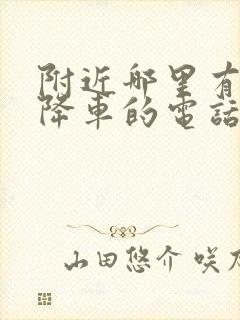 附近哪里有
降车的電話
山田悠介 咲